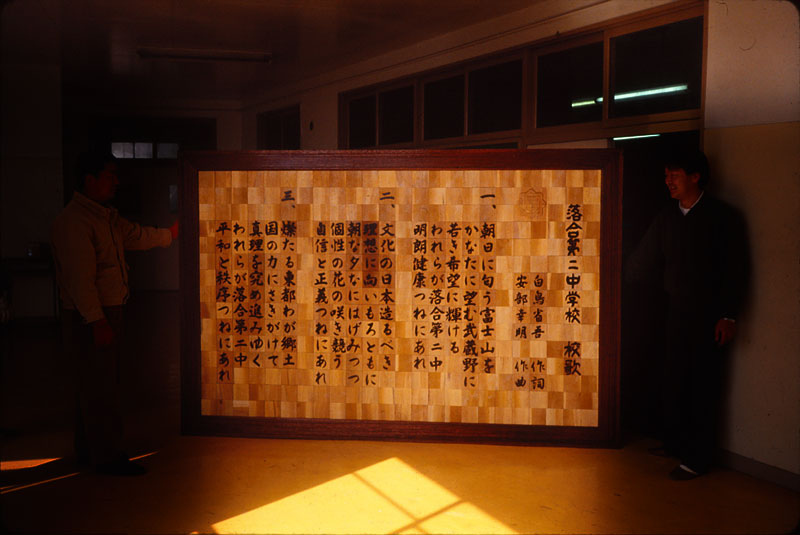 落合第二中学校 校歌
白鳥省吾 作詞
安部幸明 作曲
一、朝日に匂う富士山を
かなたに望む武蔵野に
若き希望に輝ける
われらが落合第二中
明朗健康つねにあれ
二、文化の日本造るべき
理想に向いもろともに
朝な夕なにはげみつつ
個性の花の咲き競う
自信と正義つねにあれ
三、燦たる東都わが郷土
国の力にさきがけて
真理を究め進みゆく
われらが落合第二中
平和と秩序つねにあれ